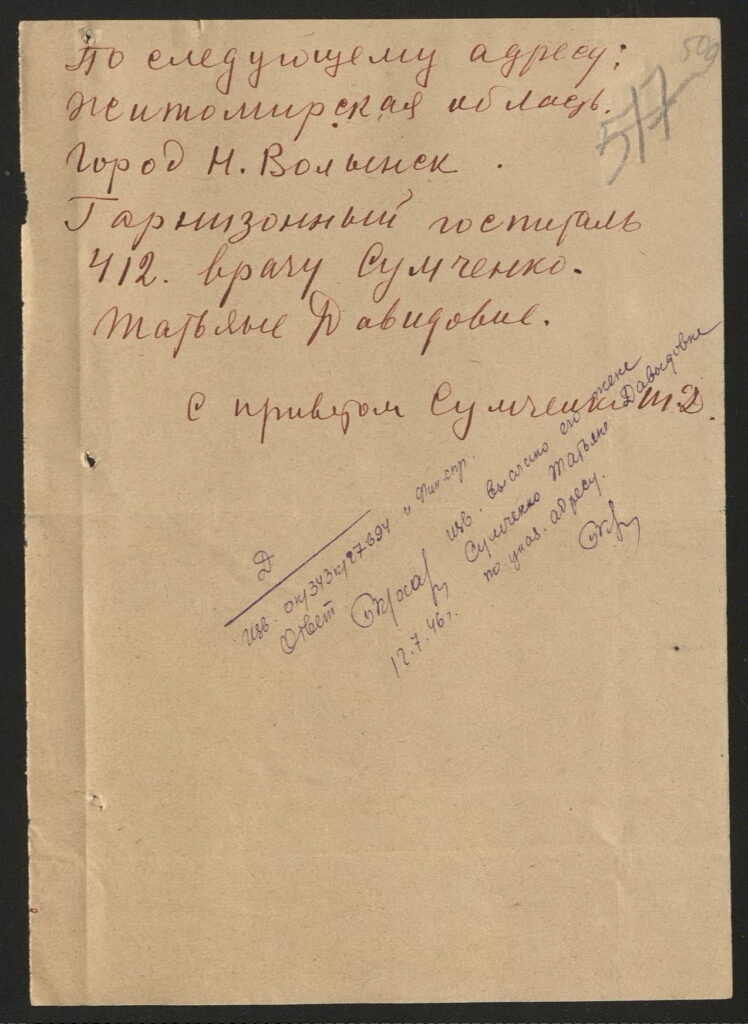 509
517
По следующему адресу:
Житомирская область.
Город Н. Волынск.
Гарнизонный госпиталь
412. врачу Сумченко.
Татьяне Давидовне.
С приветом Сумченко Т.Д.
Д
Изв. ок/343к/27694 и Фин. спр.
Ответ изв. выслано его жене
Сумченко Татьяне Давыдовне
по указ. адресу.
12.7.46г.